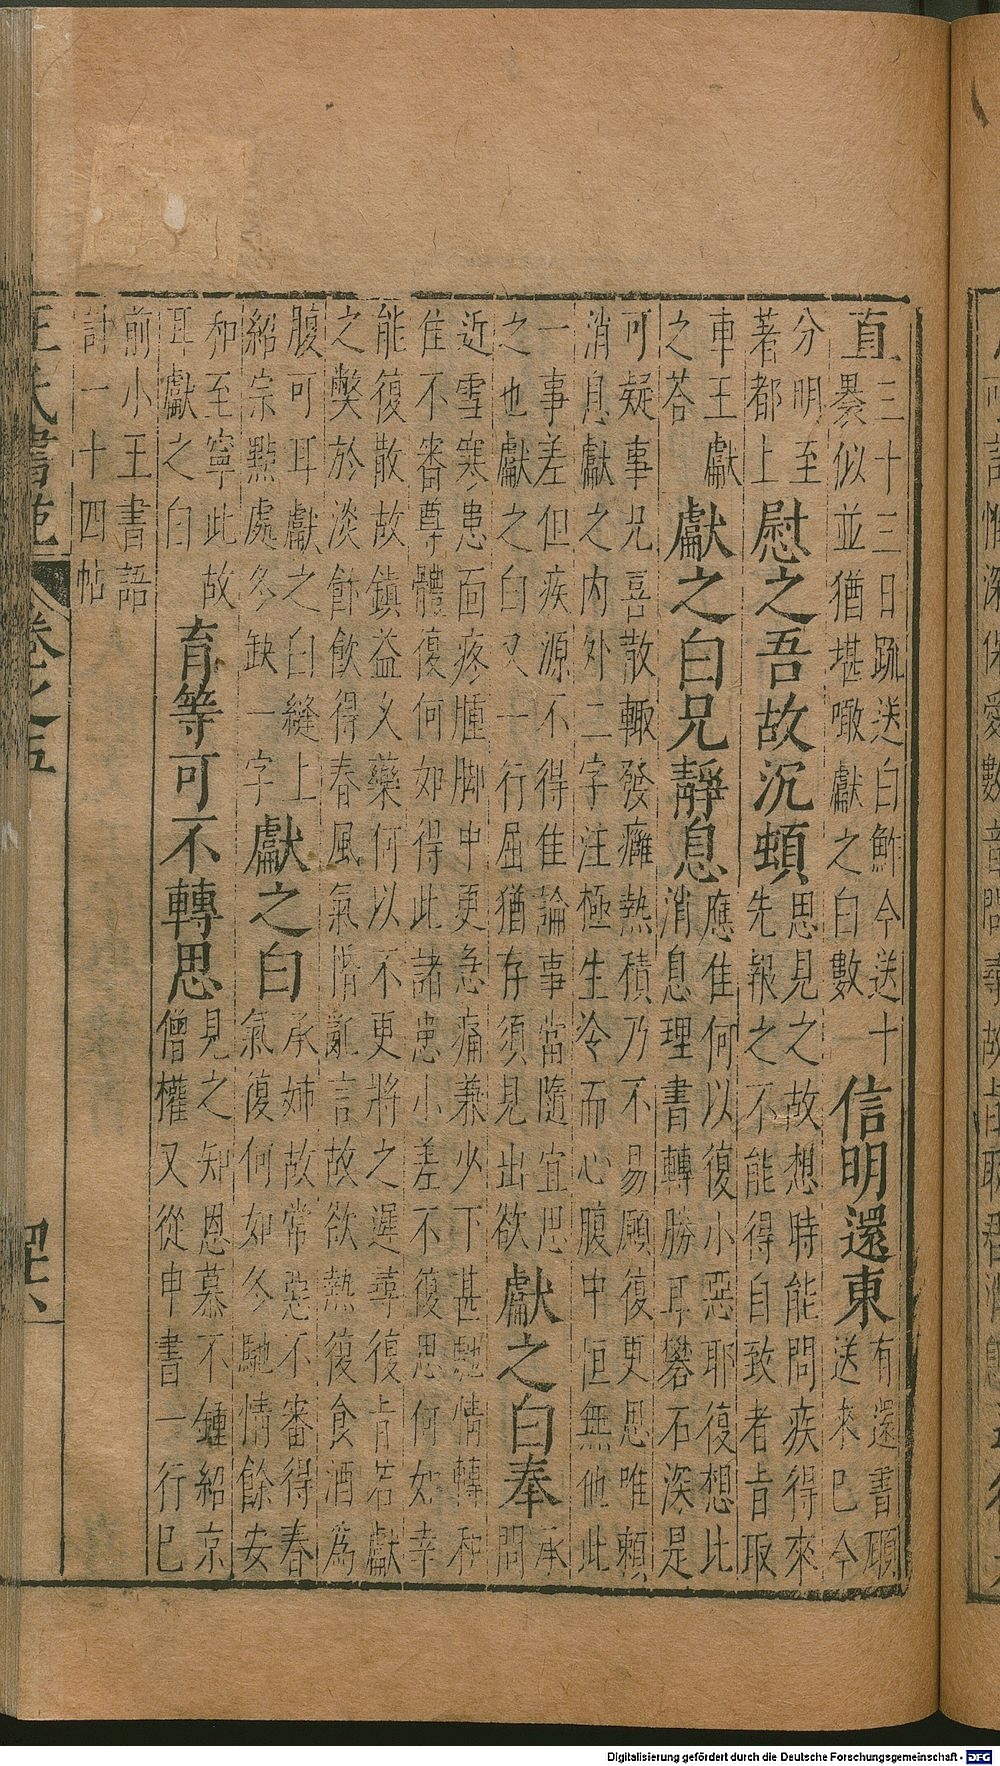 直
三十三日疏送白鮓今送十
似並猶堪噉獻之白數
信明還東
有還書願
送來已今
分明至
著都上
慰之吾故沉頓
思見之故想時能問疾得來
先報之不能得自致者旨取
車王獻
之荅
獻之白兄靜息
應佳何以復小惡耶復想比
消息理書轉勝耳礬石深是
可疑事兄喜散輙發癰熱積乃不易願復更思唯賴
消息獻之内外二字注極生冷而心腹中恒無他此
一事差但疾源不得佳論事當隨宜思
之也獻之白又一行屈猶存須見出欲
獻之白奉
承
問
近雪寒患面疼腫脚中更急痛兼少下甚馳情轉和
佳不審尊體復何如得此諸患小差不復思何如幸
能復散故鎮益乂藥何以不更將之遲尋復肯若獻
之獘於淡餙飲得春風氣偝亂言故欲熱復食酒爲
腹可耳獻之白縫上
紹宗點處冬缺一字
獻之白
承姊故常惡不審得春
氣復何如冬馳情餘安
和至寧此故
耳獻之白
育等可不轉思
見之知恩慕不鍾紹京
僧權又從申書一行巳
前小王書語
計一十四帖
王氏書苑 卷之五
Digitalisierung gefördert durch die Deutsche Forschungsgemeinschaft - DFG